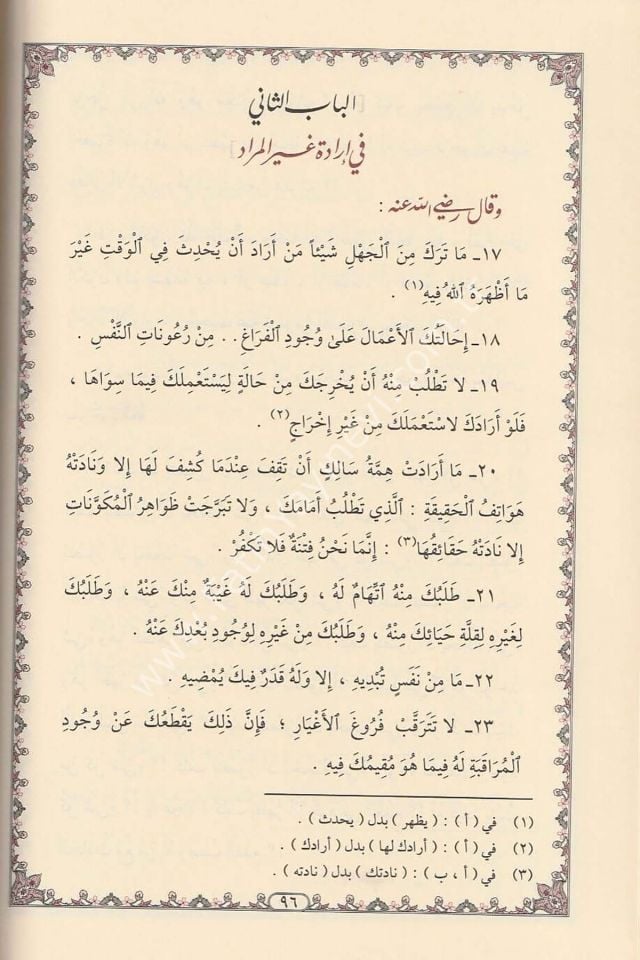 الباب الثاني
في إرادة غير المراد
وقال رضي الله عنه :
١٧ـ مَا تَرَكَ مِنَ ٱلْجَهْلِ شَيْئاً مَنْ أَرَادَ أَنْ يُحْدِثَ فِي ٱلْوَقْتِ غَيْرَ
مَا أَظْهَرَهُ ٱللهُ فِيهِ(١) .
١٨ـ إِحَالَتُكَ ٱلأَعْمَالَ عَلَىٰ وُجُودِ ٱلْفَرَاغِ . . مِنْ رُعُونَاتِ ٱلنَّفْسِ .
١٩ـ لا تَطْلُبْ مِنْهُ أَنْ يُخْرِجَكَ مِنْ حَالَةٍ لِيَسْتَعْمِلَكَ فِيمَا سِوَاهَا ،
فَلَوْ أَرَادَكَ لاسْتَعْمَلَكَ مِنْ غَيْرِ إِخْرَاجٍ(٢) .
٢٠ـ مَا أَرَادَتْ هِمَّةُ سَالِكٍ أَنْ تَقِفَ عِنْدَمَا كُشِفَ لَهَا إِلا وَنَادَتْهُ
هَوَاتِفُ ٱلْحَقِيقَةِ : ٱلَّذِي تَطْلُبُ أَمَامَكَ ، وَلا تَبَرَّجَتْ ظَوَاهِرُ ٱلْمُكَوَّنَاتِ
إِلا نَادَتْهُ حَقَائِقُهَا(٣) : إِنَّمَا نَحْنُ فِتْنَةٌ فَلا تَكْفُرْ .
٢١ـ طَلَبُكَ مِنْهُ ٱتِّهَامٌ لَهُ ، وَطَلَبُكَ لَهُ غَيْبَةٌ مِنْكَ عَنْهُ ، وَطَلَبُكَ
لِغَيْرِهِ لِقِلَّةِ حَيَائِكَ مِنْهُ ، وَطَلَبُكَ مِنْ غَيْرِهِ لِوُجُودِ بُعْدِكَ عَنْهُ .
٢٢ـ مَا مِنْ نَفَسٍ تُبْدِيهِ ، إِلا وَلَهُ قَدَرٌ فِيكَ يُمْضِيهِ .
٢٣ـ لا تَتَرَقَّبْ فُرُوغَ ٱلأَغْيَارِ ؛ فَإِنَّ ذَلِكَ يَقْطَعُكَ عَنْ وُجُودِ
ٱلْمُرَاقَبَةِ لَهُ فِيمَا هُوَ مُقِيمُكَ فِيهِ .
(١) في ( أ ) : ( يظهر ) بدل ( يحدث ) .
(٢) في ( أ ) : ( أرادك لها ) بدل ( أرادك ) .
(٣) في ( أ ، ب ) : ( نادتك ) بدل ( نادته ) .
٩٦